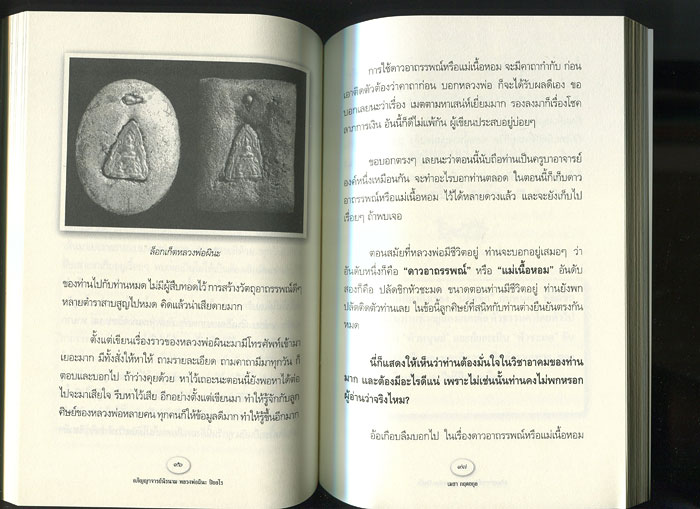 ล็อกเก็ตหลวงพ่อผินะ
ของท่านไปกับท่านหมด ไม่มีผู้สืบทอดไว้ การสร้างวัตถุอาถรรพณ์ดีๆ
หลายตำราสาบสูญไปหมด คิดแล้วน่าเสียดายมาก
ตั้งแต่เขียนเรื่องราวของหลวงพ่อผินะมามีโทรศัพท์เข้ามา
เยอะมาก มีทั้งสั่งให้หาให้ ถามรายละเอียด ถามคาถามีมาทุกวัน ก็
ตอบและบอกไป ถ้าว่างคุยด้วย หาไว้เถอะนะตอนนี้ยังพอหาได้ต่อ
ไปจะมาเสียใจ รีบหาไว้เสีย อีกอย่างตั้งแต่เขียนมา ทำให้รู้จักกับลูก
ศิษย์ของหลวงพ่อหลายคน ทุกคนก็ให้ข้อมูลดีมาก ทำให้รู้ขึ้นอีกมาก
๙๖
อภิญญาจารย์นิรนาม หลวงพ่อผินะ ปิยธโร
การใช้ดาวอาถรรพณ์หรือแม่เนื้อหอม จะมีคาถากำกับ ก่อน
เอาติดตัวต้องว่าคาถาก่อน บอกหลวงพ่อ ก็จะได้รับผลดีเอง ขอ
บอกเลยนะว่าเรื่อง เมตตามหาเสน่ห์เยี่ยมมาก รองลงมาก็เรื่องโชค
ลาภการเงิน อันนี้ก็ดีไม่แพ้กัน ผู้เขียนประสบอยู่บ่อยๆ
ขอบอกตรงๆ เลยนะว่าตอนนี้นับถือท่านเป็นครูบาอาจารย์
องค์หนึ่งเหมือนกัน จะทำอะไรบอกท่านตลอด ในตอนนี้ก็เก็บดาว
อาถรรพณ์หรือแม่เนื้อหอม ไว้ได้หลายดวงแล้ว และจะยังเก็บไป
เรื่อยๆ ถ้าพบเจอ
ตอนสมัยที่หลวงพ่อมีชีวิตอยู่ ท่านจะบอกอยู่เสมอๆ ว่า
อันดับหนึ่งก็คือ “ดาวอาถรรพณ์” หรือ “แม่เนื้อหอม” อันดับ
สองก็คือ ปลัดชิกหัวชะมด ขนาดตอนท่านมีชีวิตอยู่ ท่านยังพก
ปลัดติดตัวท่านเลย ในข้อนี้ลูกศิษย์ที่สนิทกับท่านต่างยืนยันตรงกัน
หมด
นี่ก็แสดงให้เห็นว่าท่านต้องมั่นใจในวิชาอาคมของท่าน
มาก และต้องมีอะไรดีแน่ เพราะไม่เช่นนั้นท่านคงไม่พกหรอก
ผู้อ่านว่าจริงไหม?
อ้อเกือบลืมบอกไป ในเรื่องดาวอาถรรพณ์หรือแม่เนื้อหอม
๙๗
เมชา กฤตยกุล